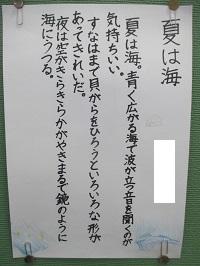 夏は海
夏は海。青く広がる海で波が立つ音を聞くのが
気持ちいい。
すなはまで貝がらをひろうといろいろな形が
あってきれいだ。
夜は空がきらきらかがやきまるで鏡のように
海にうつる。